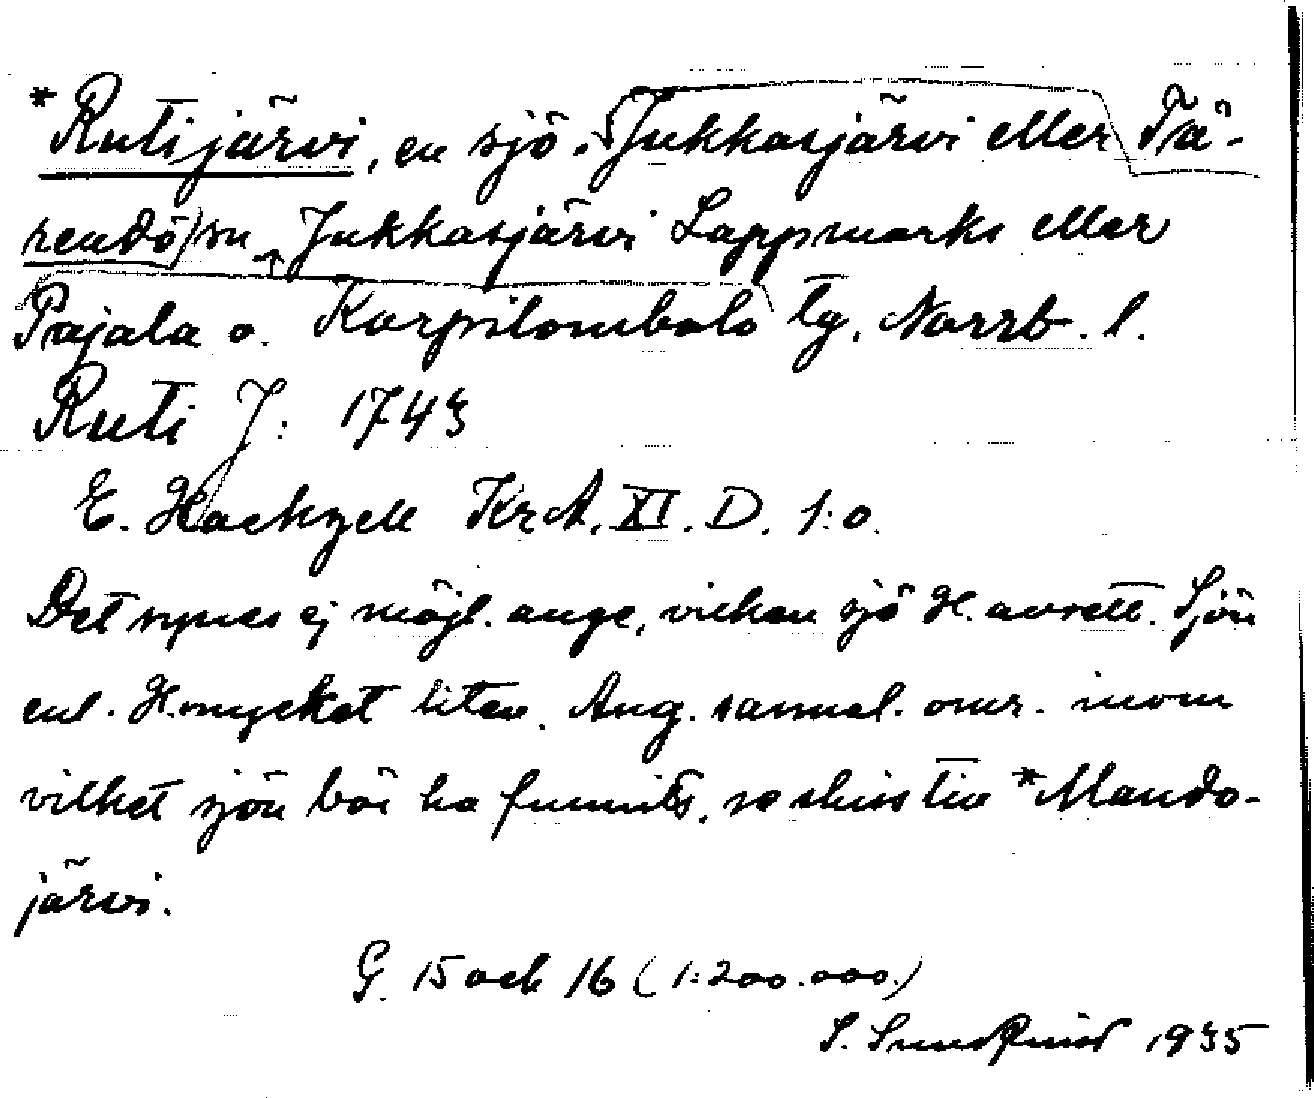 *Rutijärvi, en sjö i Jukkasjärvi eller Tä-
rendö sn, Jukkasjärvi Lappmarks eller
Pajala o. Korpilombolo tg, Norrb. l.
Ruti J: 1743
E. Hackzell KrA. XI. D. 1:o.
Det synes ej möjl. ange, vilken sjö H. avsett. Sjön
enl. H. mycket liten. Ang. samml. omr. inom
vilket sjön bör ha funnits, se skiss till *Mando-
järvi.
G. 15 och 16 (1:200.000.)
S. Sundqvist 1935